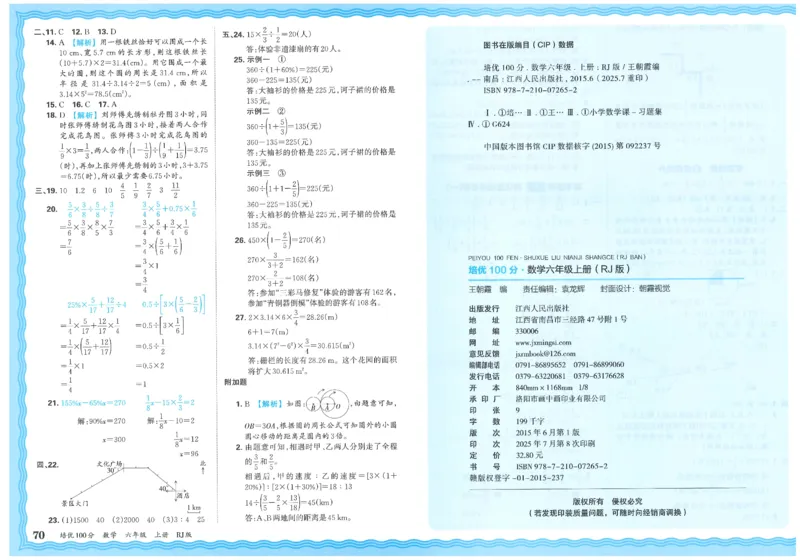 二、11. C 12. B 13. D
14. A 【解析】用一根铁丝恰好可以围成一个长
10 cm、宽 5.7 cm 的长方形,则这根铁丝长
(10+5.7)×2=31.4(cm)。用它围成一个最
大的圆,则这个圆的周长是 31.4 cm,所以
半径是 31.4÷3.14÷2=5(cm),面积是
3.14×5²=78.5(cm²)。
15. C 16. C 17. A
18. D 【解析】刘师傅先绣制牡丹图 3 小时,同
时张师傅绣制花鸟图 3 小时,接着两人合作
完成花鸟图。张师傅 3 小时完成花鸟图的
1/9×3=1/3,两人合作:(1-1/3)÷(1/9+1/15)=3.75
(时),再加上张师傅先绣制的 3 小时,3+3.75
=6.75(时),所以最少需要 6.75 小时。
三、19. 10 1.2 6 10 4/5 1/9 2/7 3 11/2
20. 5/6×3/8÷5/8÷3/7
=5/6×3/8×8/5×7/3
=7/6
3/4×5/6+0.75×1/6
=3/4×5/6+3/4×1/6
=3/4×(5/6+1/6)
=3/4×1
=3/4
25%×5/17+12/17÷4
=1/4×5/17+12/17×1/4
=1/4×(5/17+12/17)
=1/4×1
=1/4
6.5÷[3×(5/6-2/3)]
=0.5÷[3×1/6]
=0.5÷1/2
=0.5×2
=1
21. 155%x-65%x=270
解:90%x=270
x=300
1/8x-15×2/3=2
解:1/8x-10=2
1/8x=12
x=96
四、22.
文化广场
30°
北
40°
酒店
景区大门
1 km
23. (1)1500 40 (2)2000 40 (3)3:4 25
70 培优100分 数学 六年级 上册 RJ版
五、24. 15×2/3÷1/2=20(人)
答:体验非遗漆扇的有 20 人。
25. 示例一 ①
360÷(1+60%)=225(元)
360-225=135(元)
答:大袖衫的价格是 225 元,诃子裙的价格是
135 元。
示例二 ②
360÷(1+5/3)=135(元)
360-135=225(元)
答:大袖衫的价格是 225 元,诃子裙的价格是
135 元。
示例三 ③
360÷(1+1-2/5)=225(元)
360-225=135(元)
答:大袖衫的价格是 225 元,诃子裙的价格是
135 元。
26. 450×(1-2/5)=270(名)
270×3/(3+2)=162(名)
270×2/(3+2)=108(名)
答:参加“三彩马修复”体验的游客有 162 名,
参加“青铜器倒模”体验的游客有 108 名。
27. 2×3.14×6×3/4=28.26(m)
6+1=7(m)
3.14×(7²-6²)×3/4=30.615(m²)
答:栅栏的长度有 28.26 m。这个花园的面积
将扩大 30.615 m²。
附加题
1. B 【解析】如图:
,由题意可知,
OB=3OA,根据圆的周长公式可知圆外的小圆
圆心移动的距离是圆内的 3 倍。
2. 由题意可知,相遇时甲、乙两人分别走了全程
的3/5和2/5。
相遇后,甲的速度:乙的速度=[3×(1+
20%)]:[2×(1+30%)]=18:13
14÷(3/5-2/5×13/18)=45(km)
答:A、B 两地间的距离是 45 km。
图书在版编目(CIP)数据
培优 100 分.数学六年级.上册:RJ 版 / 王朝霞编
. -- 南昌:江西人民出版社,2015.6 (2025.7 重印)
ISBN 978-7-210-07265-2
Ⅰ.①培… Ⅱ.①王… Ⅲ.①小学数学课－习题集
Ⅳ.①G624
中国版本图书馆 CIP 数据核字 (2015) 第 092237 号
PEIYOU 100 FEN · SHUXUE LIU NIANJI SHANGCE (RJ BAN)
培优 100 分·数学六年级上册(RJ 版)
王朝霞 编 责任编辑:袁龙辉 封面设计:朝霞视觉
出版发行 江西人民出版社
地 址 江西省南昌市三经路 47 号附 1 号
邮 编 330006
网 址 www.jxrmingsi.com
意见反馈 jxrmbook@126.com
编辑部电话 0791-86895652 0791-86899060
发行电话 0379-63220681 0379-63176628
开 本 840mm×1168mm 1/8
承 印 厂 洛阳市画中画印业有限公司
印 张 9
字 数 199 千字
版 次 2015 年 6 月第 1 版
印 次 2025 年 7 月第 8 次印刷
定 价 32.80 元
书 号 ISBN 978-7-210-07265-2
赣版权登字 -01-2015-237
版权所有 侵权必究
(若发现印装质量问题,可随时向经销商调换)